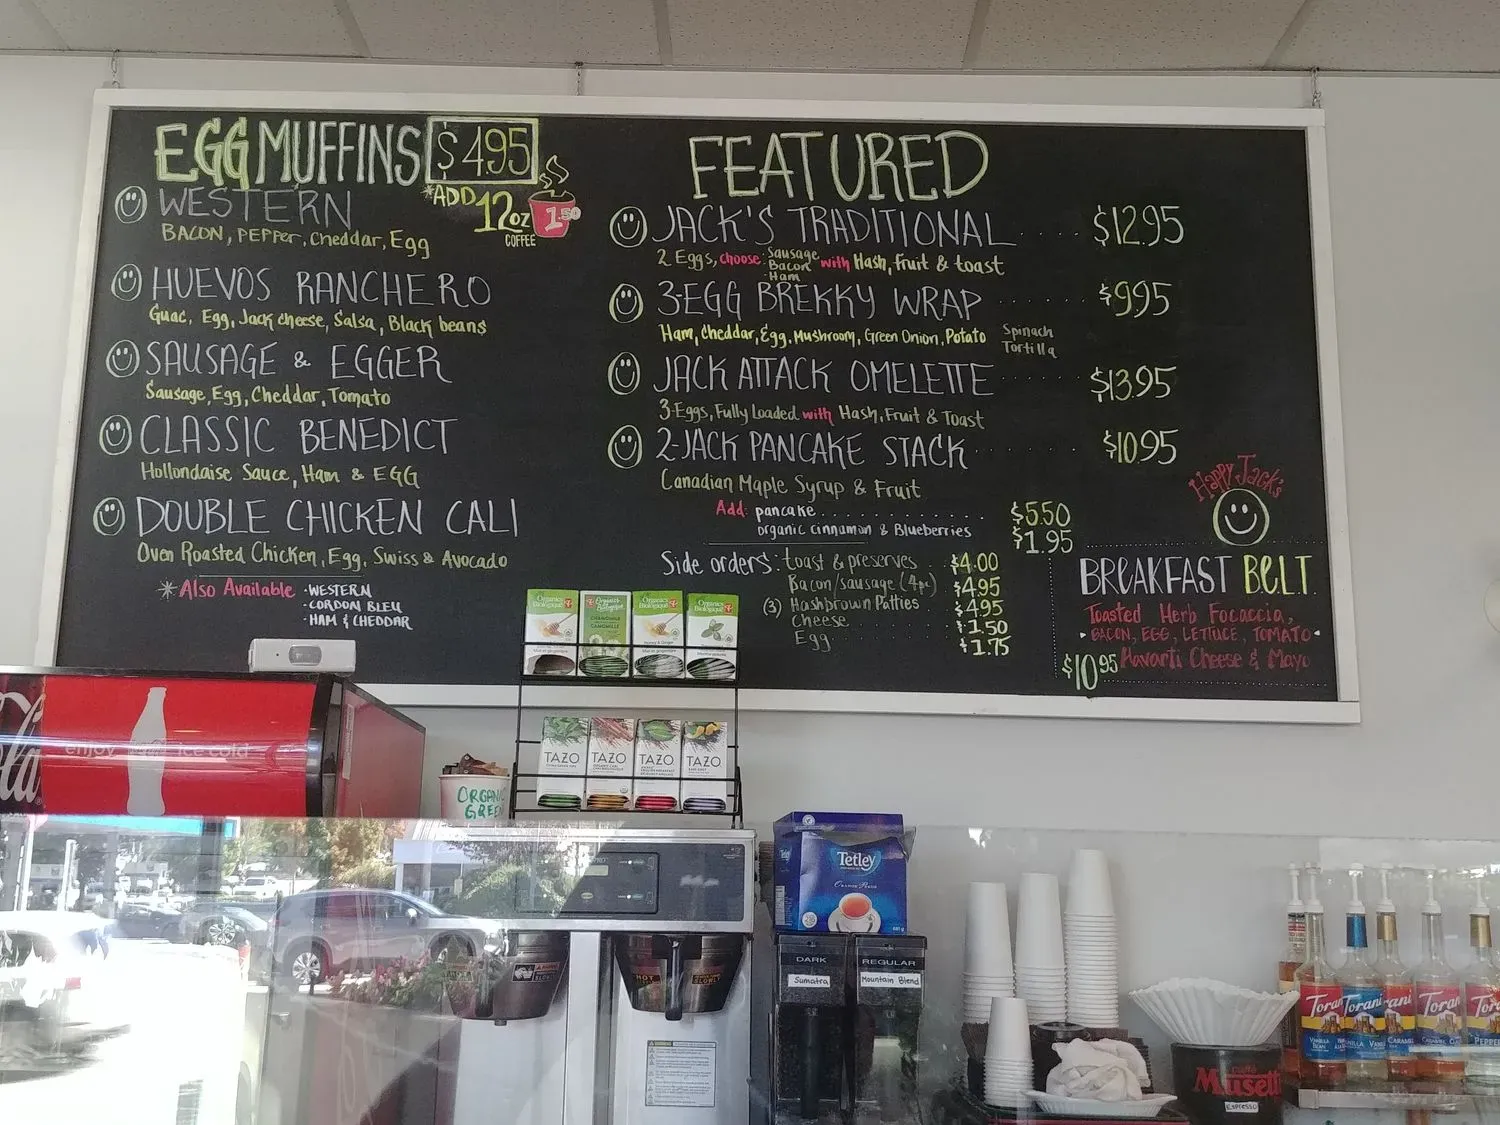 EGG MUFFINS $4.95
*ADD 12oz COFFEE 1.50
WESTERN
BACON, PEPPER, Cheddar, Egg
HUEVOS RANCHERO
Guac, Egg, Jack cheese, Salsa, Black beans
SAUSAGE & EGGER
Sausage, Egg, Cheddar, Tomato
CLASSIC BENEDICT
Hollondaise Sauce, Ham & EGG
DOUBLE CHICKEN CALI
Oven Roasted Chicken, Egg, Swiss & Avocado
*Also Available · WESTERN
· CORDON BLEU
· HAM & CHEDDAR
FEATURED
JACK'S TRADITIONAL .... $12.95
2 Eggs, choose: Sausage
Bacon
Ham
with Hash, Fruit & toast
3-EGG BREKKY WRAP ...... $9.95
Ham, Cheddar, Egg, Mushroom, Green Onion, Potato
Spinach
Tortilla
JACK ATTACK OMELETTE ...... $13.95
3-Eggs, Fully Loaded with Hash, Fruit & Toast
2-JACK PANCAKE STACK ....... $10.95
Canadian Maple Syrup & Fruit
Add: pancake ............ $5.50
organic cinnamon & Blueberries $1.95
Side orders: toast & preserves $4.00
Bacon/sausage (4pc) $4.95
(3) Hashbrown Patties $4.95
Cheese $1.50
Egg $1.75
Happy Jack's
BREAKFAST B.E.L.T.
Toasted Herb Focaccia,
BACON, EGG, LETTUCE, TOMATO
$10.95 Havarti Cheese & Mayo
Organics
Biologique
Organics
Biologique
Organics
Biologique
Organics
Biologique
CAMOMILLE
TAZO
TAZO
TAZO
TAZO
ORGANIC
GREEN
enjoy ice cold
Tetley
Orange Pekoe
DARK
Sumatra
REGULAR
Mountain Blend
HOT
Torani
VANILLA BEAN
Torani
VANILLA
Torani
CARAMEL
Torani
Torani
PEPPER
caffè
Musetti
Espresso